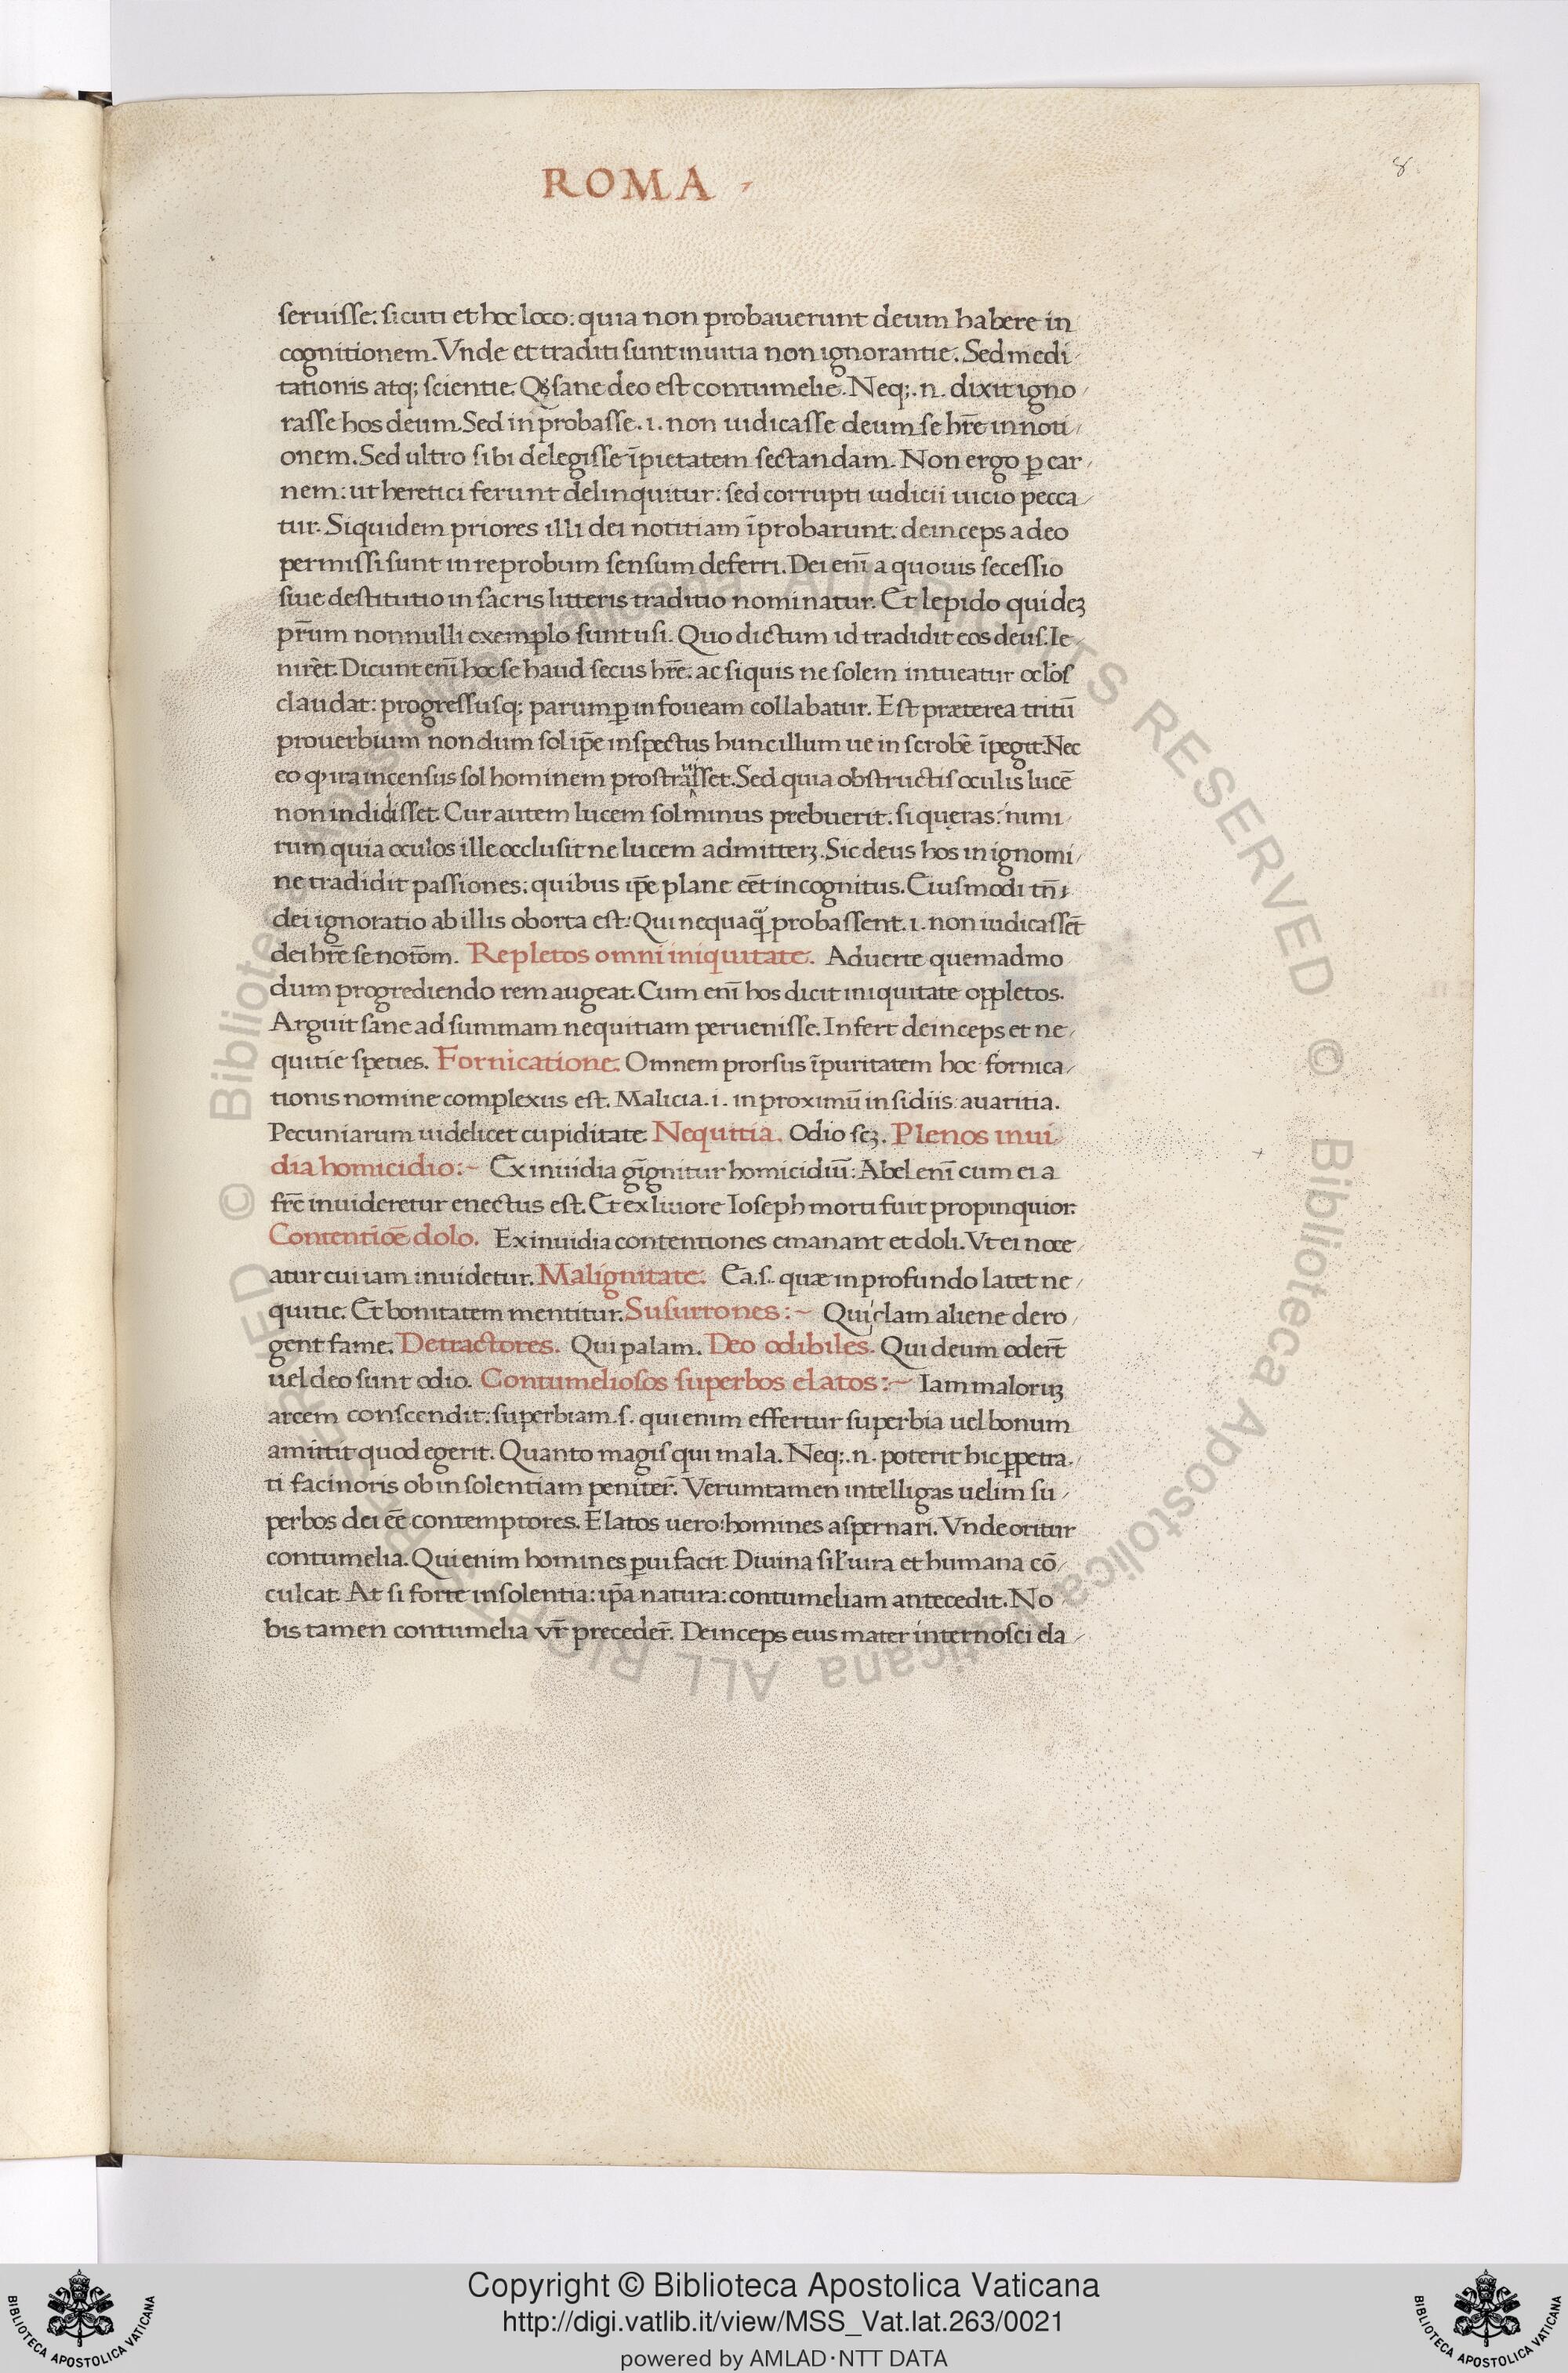 ROMA
8
seruisse: sicuti et hoc loco: quia non probauerunt deum habere in
cognitionem. Vnde et traditi sunt in uitia non ignorantie. Sed medi
tationis atq; scientie. Qꝫ sane deo est contumelie. Neq; .n. dixit igno
rasse hos deum. Sed inprobasse .i. non iudicasse deum se hr̄e in noti
onem. Sed ultro sibi delegisse īpietatem sectandam. Non ergo ꝑ car
nem: ut heretici ferunt delinquitur: sed corrupti iudicii uicio pecca
tur. Siquidem priores illi dei notitiam īprobarunt: deinceps a deo
permissi sunt in reprobum sensum deferri. Dei enī a quouis secessio
siue destitutio in sacris litteris traditio nominatur. Et lepido quideꝫ
pr̄um nonnulli exemplo sunt usi. Quo dictum id tradidit eos deus. Ie
nirēt. Dicunt enī hoc se haud secus hr̄e: ac siquis ne solem intueatur oclōs
claudat: progressusq; parumꝑ in foueam collabatur. Est præterea tritū
prouerbium nondum sol ip̄e inspectus hunc illum ue in scrobē īpegit. Nec
eo ꝙ ira incensus sol hominem prostrauisset. Sed quia obstructis oculis lucē
non indidisset. Cur autem lucem sol minus prebuerit. si quęras: nimi
rum quia oculos ille occlusit ne lucem admitterꝫ. Sic deus hos in ignomi
ne tradidit passiones: quibus ip̄e plane eēt incognitus. Eiusmodi tn̄
dei ignoratio ab illis oborta est: Qui nequaq̄ probassent .i. non iudicassēt
dei hr̄e se notōm. Repletos omni iniquitate. Aduerte quemadmo
dum progrediendo rem augeat. Cum enī hos dicit iniquitate oppletos.
Arguit sane ad summam nequitiam peruenisse. Infert deinceps et ne
quitie speties. Fornicatione. Omnem prorsus īpuritatem hoc fornica
tionis nomine complexus est. Malicia .i. in proximū insidiis auaritia.
Pecuniarum uidelicet cupiditate. Nequitia. Odio scꝫ. Plenos inui
dia homicidio:~ Ex inuidia gignitur homicidiū: Abel enī cum ei a
fr̄e inuideretur enectus est. Et ex liuore Ioseph morti fuit propinquior.
Contentiōe dolo. Ex inuidia contentiones emanant et doli. Vt ei noce
atur cui iam inuidetur. Malignitate. Ea .s. quæ in profundo latet ne
quitie. Et bonitatem mentitur. Susurrones:~ Qui clam aliene dero
gent fame. Detractores. Qui palam. Deo odibiles. Qui deum oder̄t
uel deo sunt odio. Contumeliosos superbos elatos:~ Iam maloruꝫ
arcem conscendit: superbiam .s. qui enim effertur superbia uel bonum
amittit quod egerit. Quanto magis qui mala. Neq; .n. poterit hic ꝑpetra
ti facinoris ob insolentiam peniter̄. Verumtamen intelligas uelim su
perbos dei eē contemptores. Elatos uero: homines aspernari. Vnde oritur
contumelia. Qui enim homines ꝑui facit. Diuina sil' iura et humana cō
culcat. At si forte insolentia: ip̄a natura: contumeliam antecedit. No
bis tamen contumelia vr̄ preceder̄. Deinceps eius mater internosci ela
Copyright © Biblioteca Apostolica Vaticana
http://digi.vatlib.it/view/MSS_Vat.lat.263/0021
powered by AMLAD·NTT DATA
BIBLIOTECA APOSTOLICA VATICANA
BIBLIOTECA APOSTOLICA VATICANA
© Biblioteca Apostolica Vaticana ALL RIGHTS RESERVED © Biblioteca Apostolica Vaticana ALL RIGHTS RESERVED